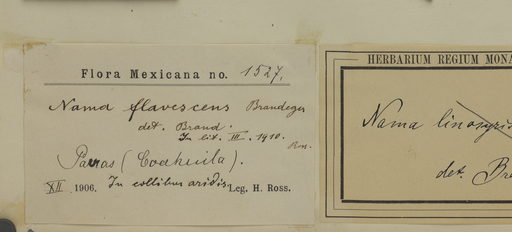 Flora Mexicana no. 1527.
Nama flavescens Brandegee
det. Brand.
In lit. III. 1910.
Parras (Coahuila).
XII. 1906. In collibus aridis. Leg. H. Ross.
HERBARIUM REGIUM MONA
Nama
det. Br